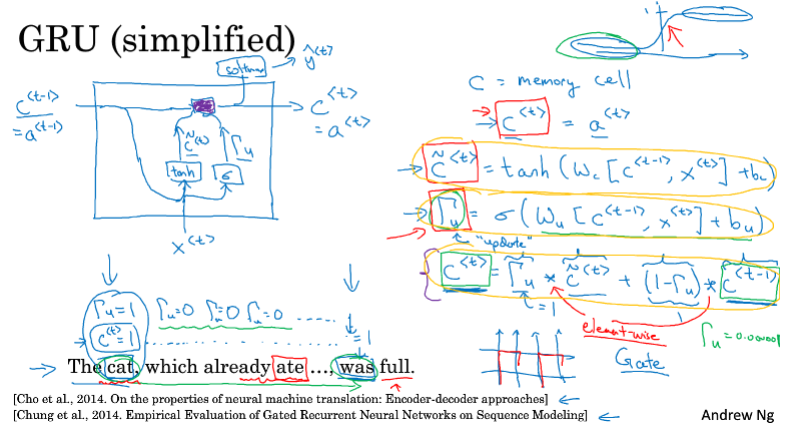 GRU (simplified)
softmax → ŷ^<t>
c^<t-1> = a^<t-1>
c^<t> = a^<t>
c̃^<t> Γu
tanh σ
x^<t>
C = memory cell
→ c^<t> = a^<t>
→ c̃^<t> = tanh(Wc[c^<t-1>, x^<t>] + bc)
→ Γu = σ(Wu[c^<t-1>, x^<t>] + bu)
"update"
c^<t> = Γu * c̃^<t> + (1-Γu) * c^<t-1>
=1
element-wise
Gate
Γu = 0.000001
Γu=1 Γu=0 Γu=0 Γu=0 .....
c^<t>=1 ..... =1
→ The cat, which already ate …, was full.
[Cho et al., 2014. On the properties of neural machine translation: Encoder-decoder approaches] ←
[Chung et al., 2014. Empirical Evaluation of Gated Recurrent Neural Networks on Sequence Modeling] ←
Andrew Ng